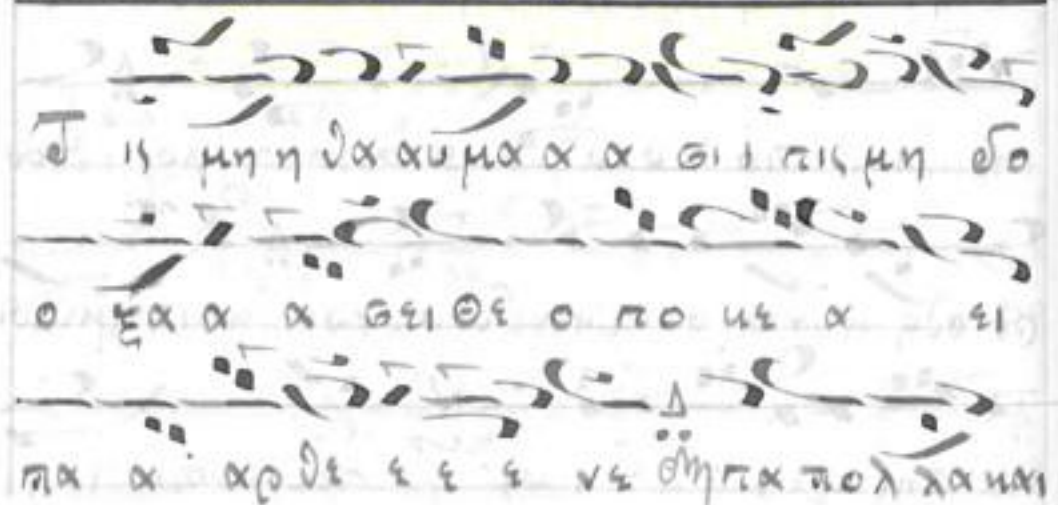 Τ ις μη η θα αυ μα α α σι ι τις μη δο
ο ξα α α σει Θε ο το κε α ει
πα α αρ θε ε ε ε νε Δ τα πο λ λα και